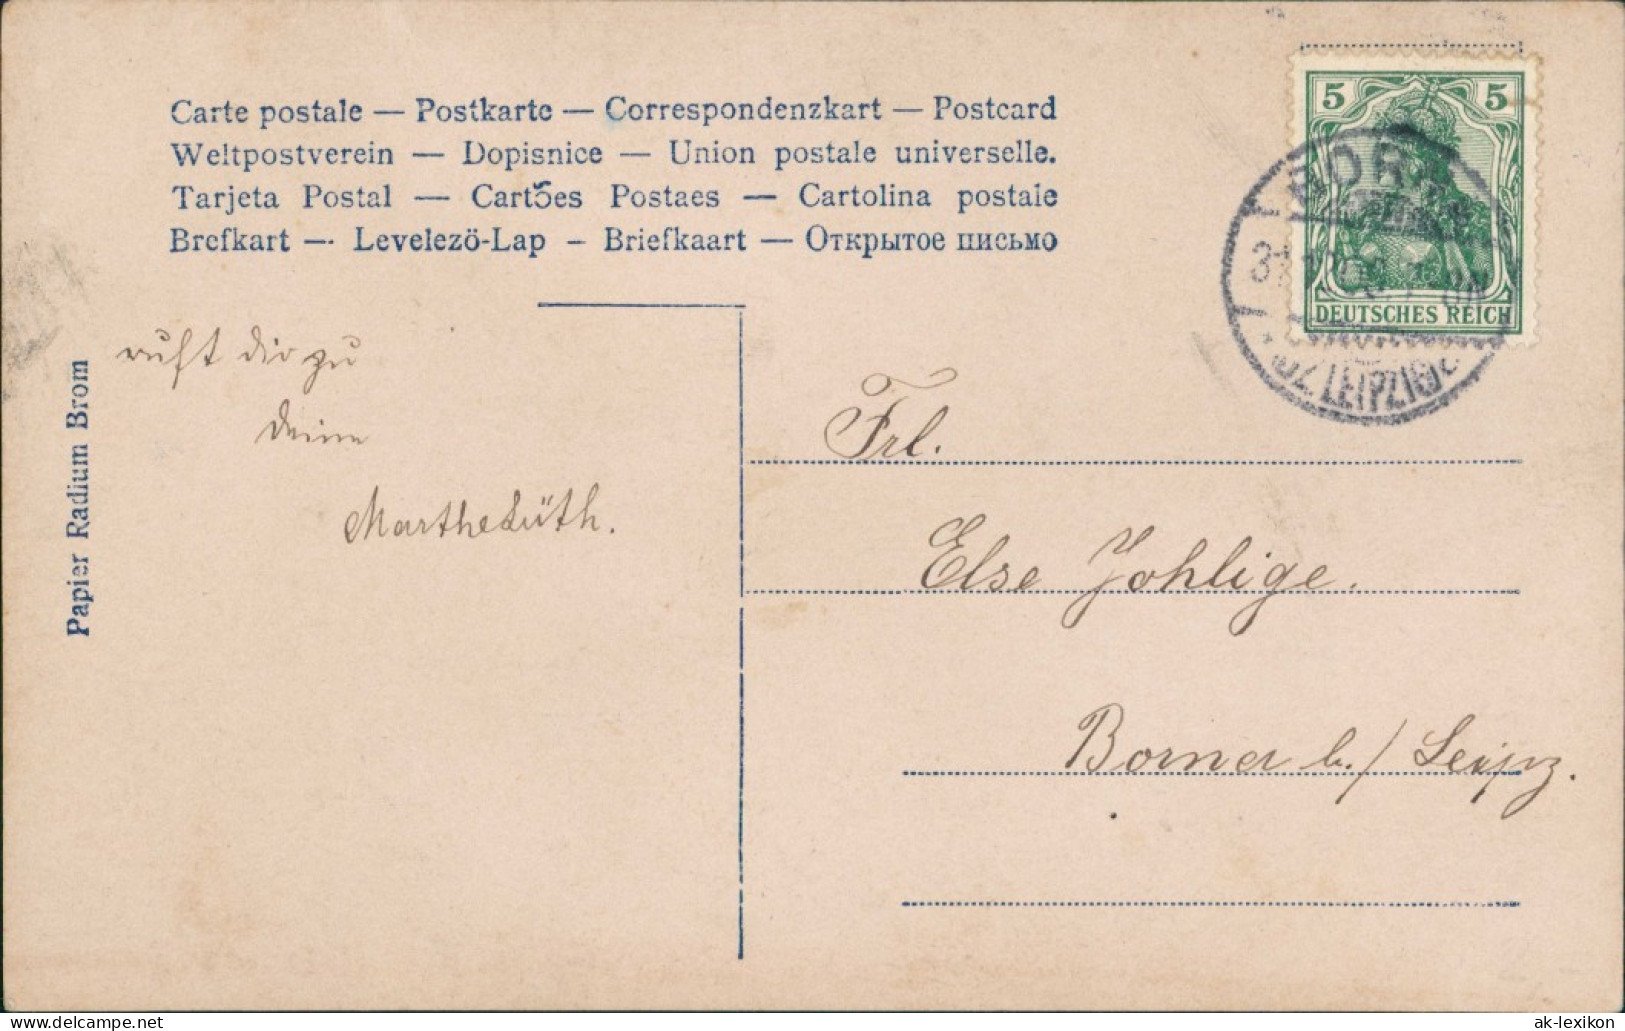 Carte postale — Postkarte — Correspondenzkart — Postcard
Weltpostverein — Dopisnice — Union postale universelle.
Tarjeta Postal — Cartões Postaes — Cartolina postale
Brefkart — Levelezö-Lap – Briefkaart — Открытое письмо
5 5
DEUTSCHES REICH
LEIPZIG
Papier Radium Brom
ruft dir zu
deine
Marthe Lüth.
Frl.
Else Johlige.
Borna b./Leipz.
www.delcampe.net
ak-lexikon